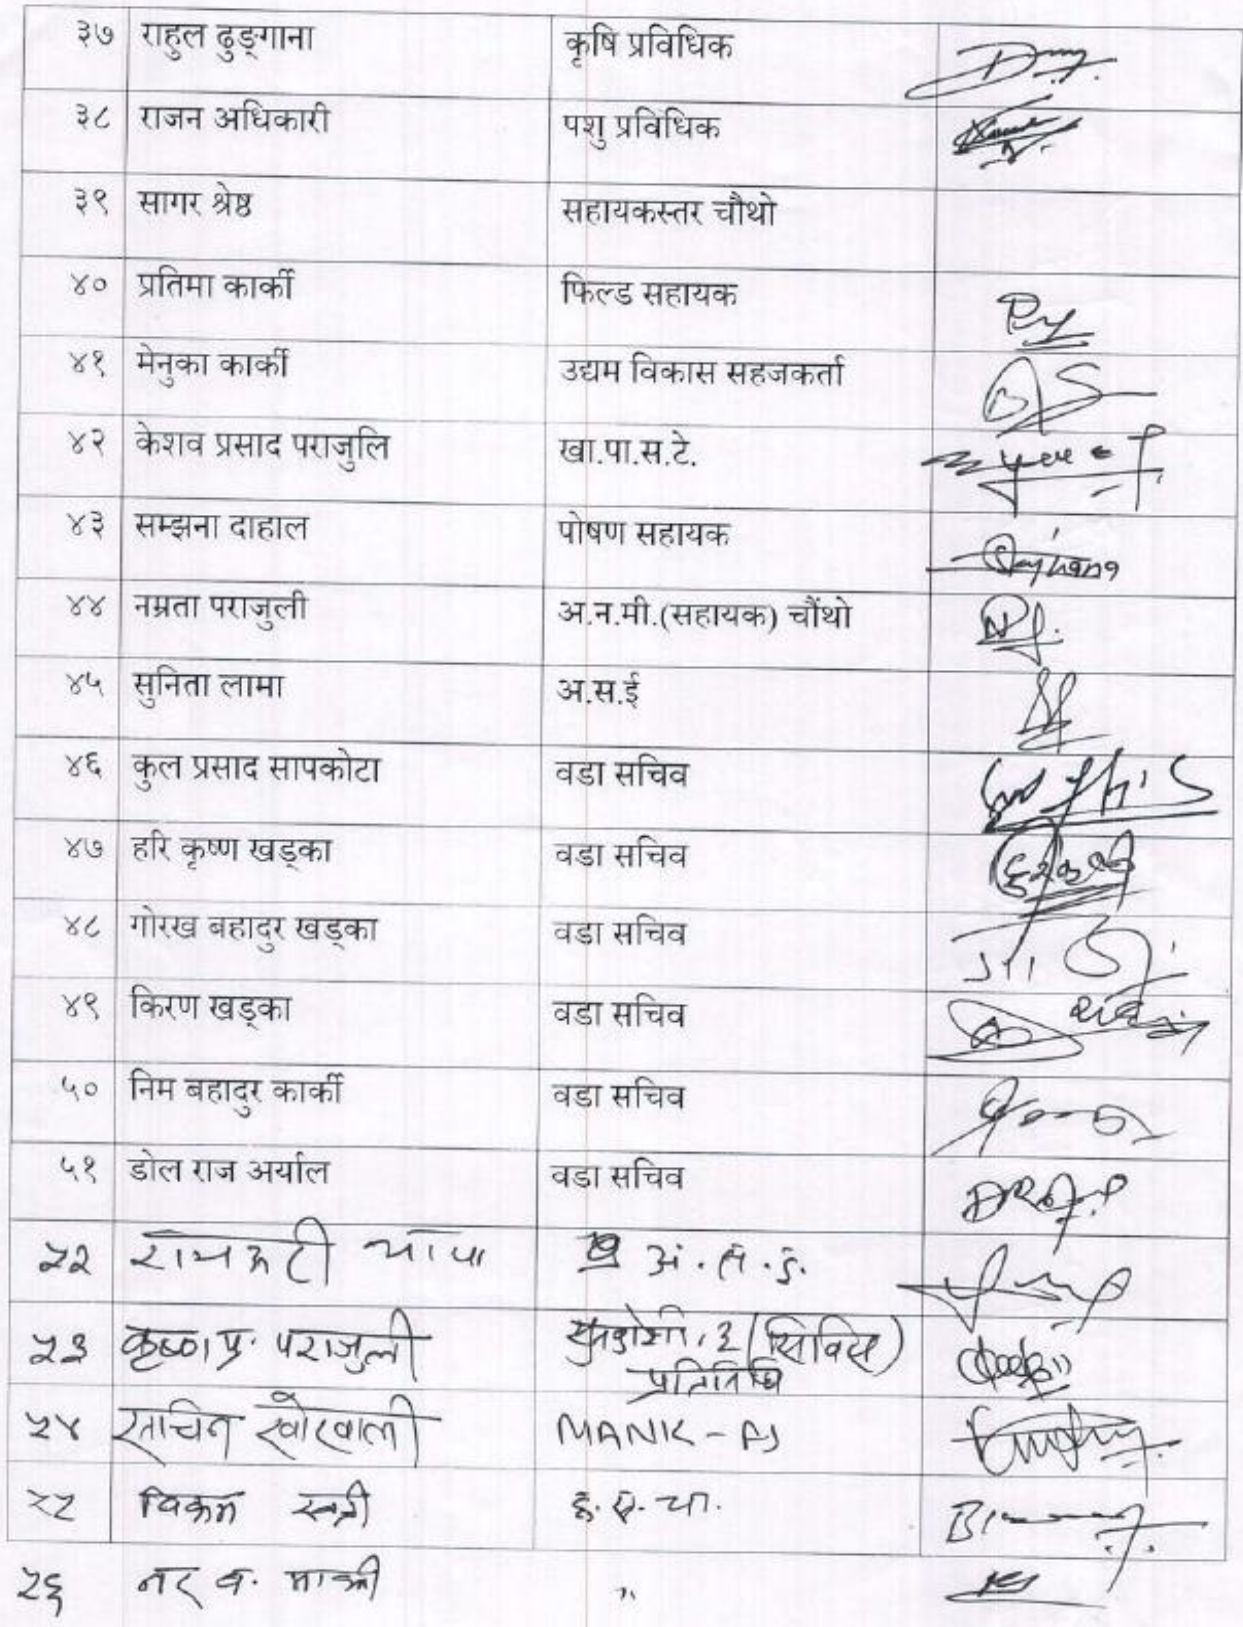 ३७ राहुल ढुङ्गाना कृषि प्रविधिक
३८ राजन अधिकारी पशु प्रविधिक
३९ सागर श्रेष्ठ सहायकस्तर चौथो
४० प्रतिमा कार्की फिल्ड सहायक
४१ मेनुका कार्की उद्यम विकास सहजकर्ता
४२ केशव प्रसाद पराजुलि खा.पा.स.टे.
४३ सम्झना दाहाल पोषण सहायक
४४ नम्रता पराजुली अ.न.मी.(सहायक) चौंथो
४५ सुनिता लामा अ.स.ई
४६ कुल प्रसाद सापकोटा वडा सचिव
४७ हरि कृष्ण खड्का वडा सचिव
४८ गोरख बहादुर खड्का वडा सचिव
४९ किरण खड्का वडा सचिव
५० निम बहादुर कार्की वडा सचिव
५१ डोल राज अर्याल वडा सचिव
५२ थापा अ.स.ई.
५३ कृष्ण प्र. पराजुली
५४ सचिन
५५ विक्रम खत्री ह.स.चा.
५६ नर ब. "